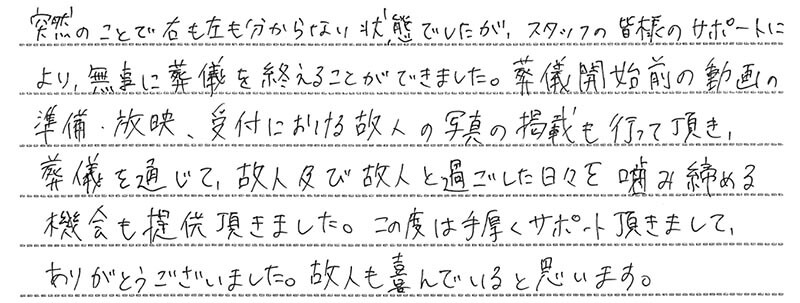 突然のことで右も左も分からない状態でしたが、スタッフの皆様のサポートに
より、無事に葬儀を終えることができました。葬儀開始前の動画の
準備・放映、受付における故人の写真の掲載も行って頂き、
葬儀を通じて、故人及び故人と過ごした日々を噛み締める
機会も提供頂きました。この度は手厚くサポート頂きまして、
ありがとうございました。故人も喜んでいると思います。